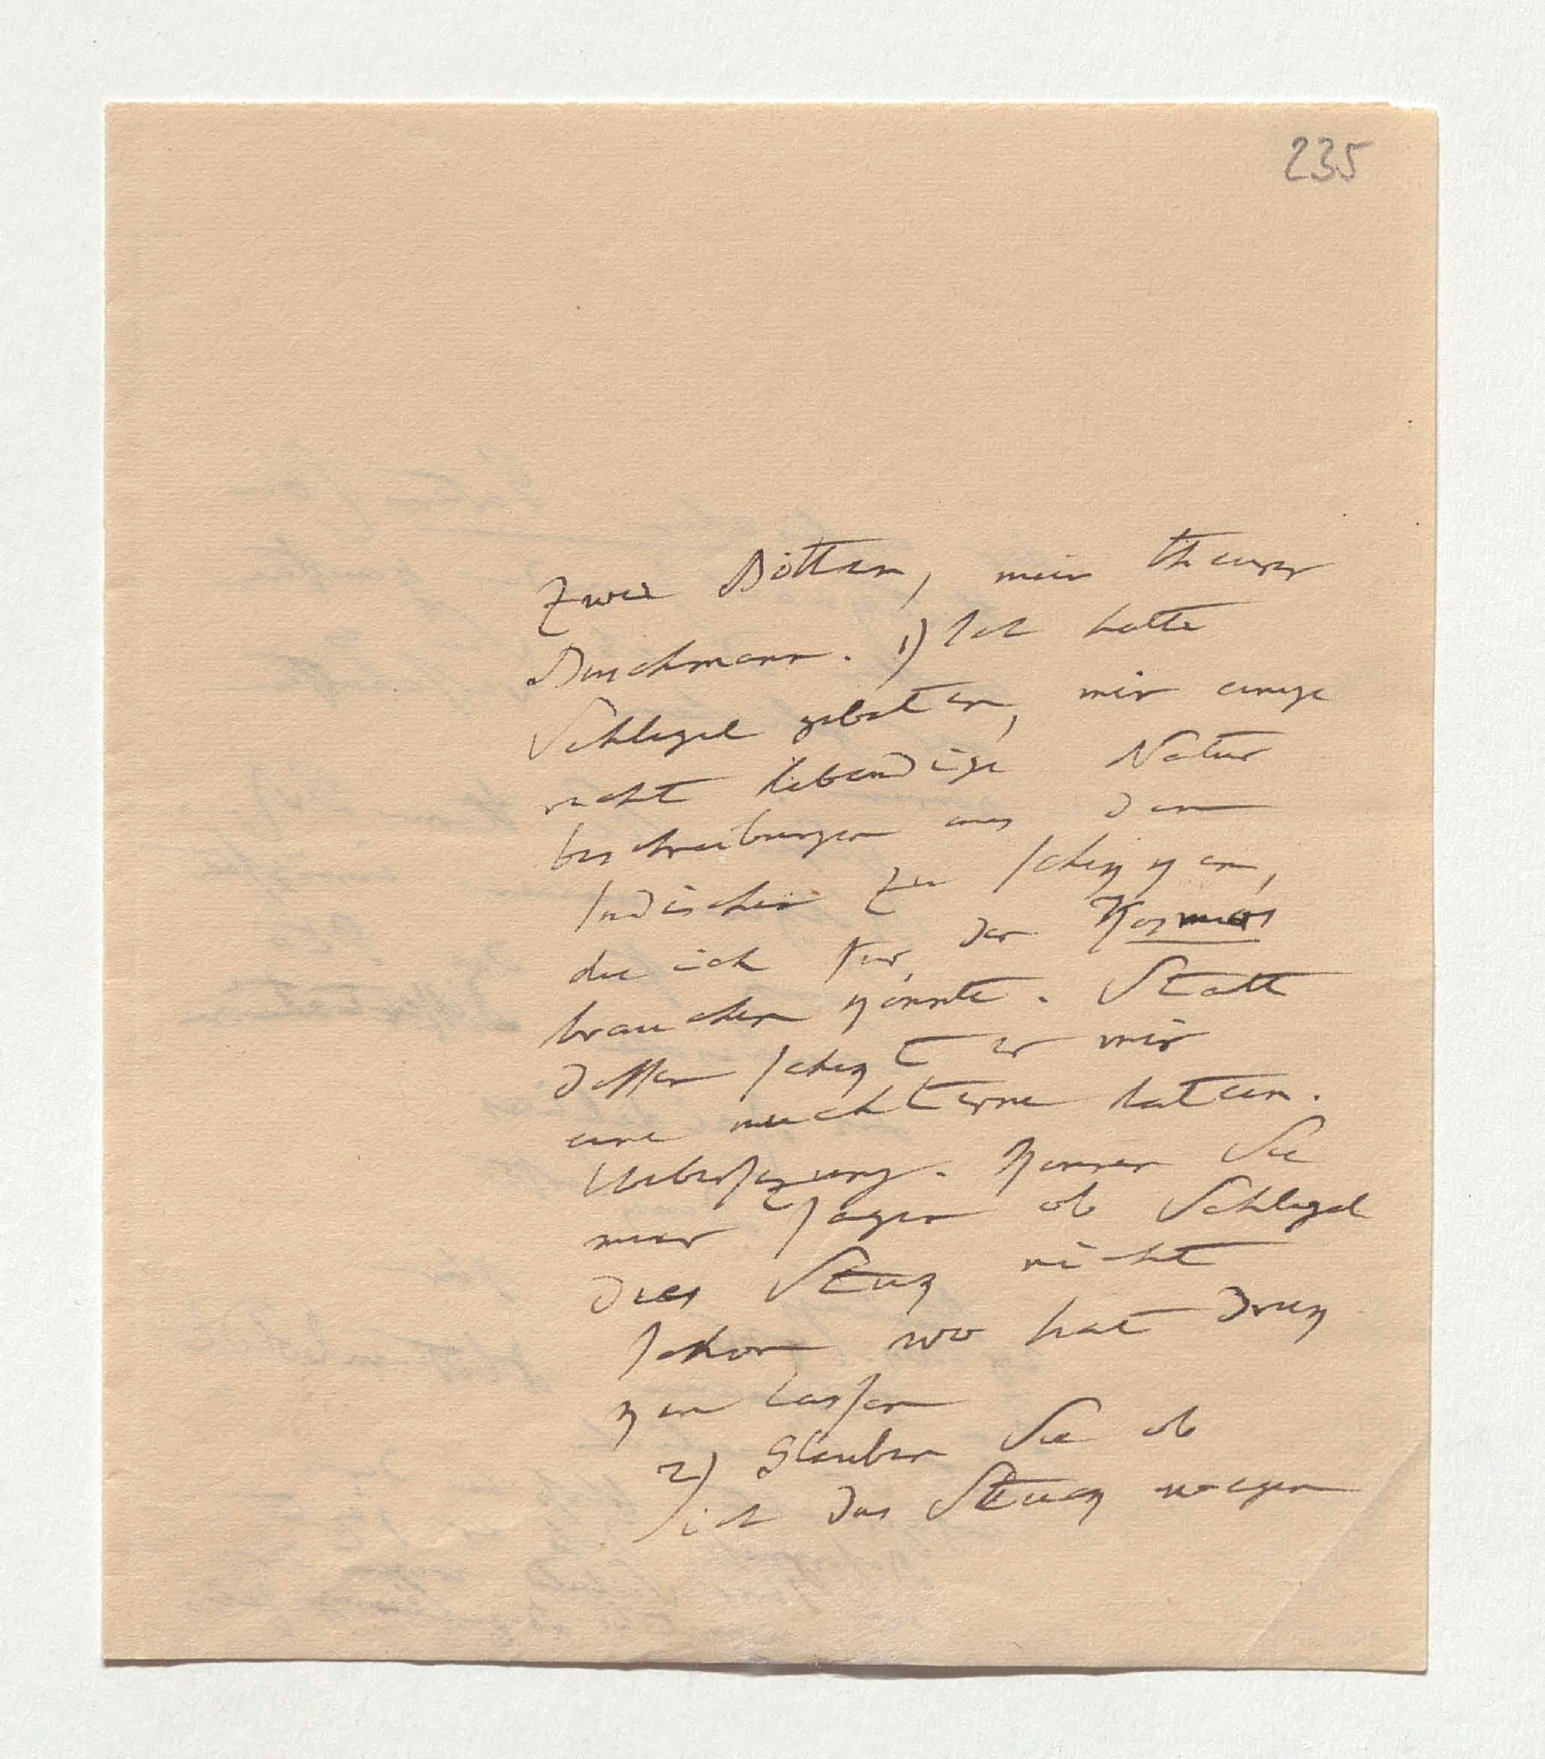 235
Zwei Bitten, mein theurer
Buschmann. 1) Ich hatte
Schlegel gebeten, mir einige
recht lebendige Natur
beschreibungen aus dem
Indischen zu schikken,
die ich für den Kosmos
brauchen könnte. Statt
dessen schikt er mir
eine nuchterne latein.
Uebersezung. Konnen Sie
mir sagen ob Schlegel
dies Stük nicht
schon wo hat druk
ken lassen
2) Glauben Sie ob
ich das Stük wegen